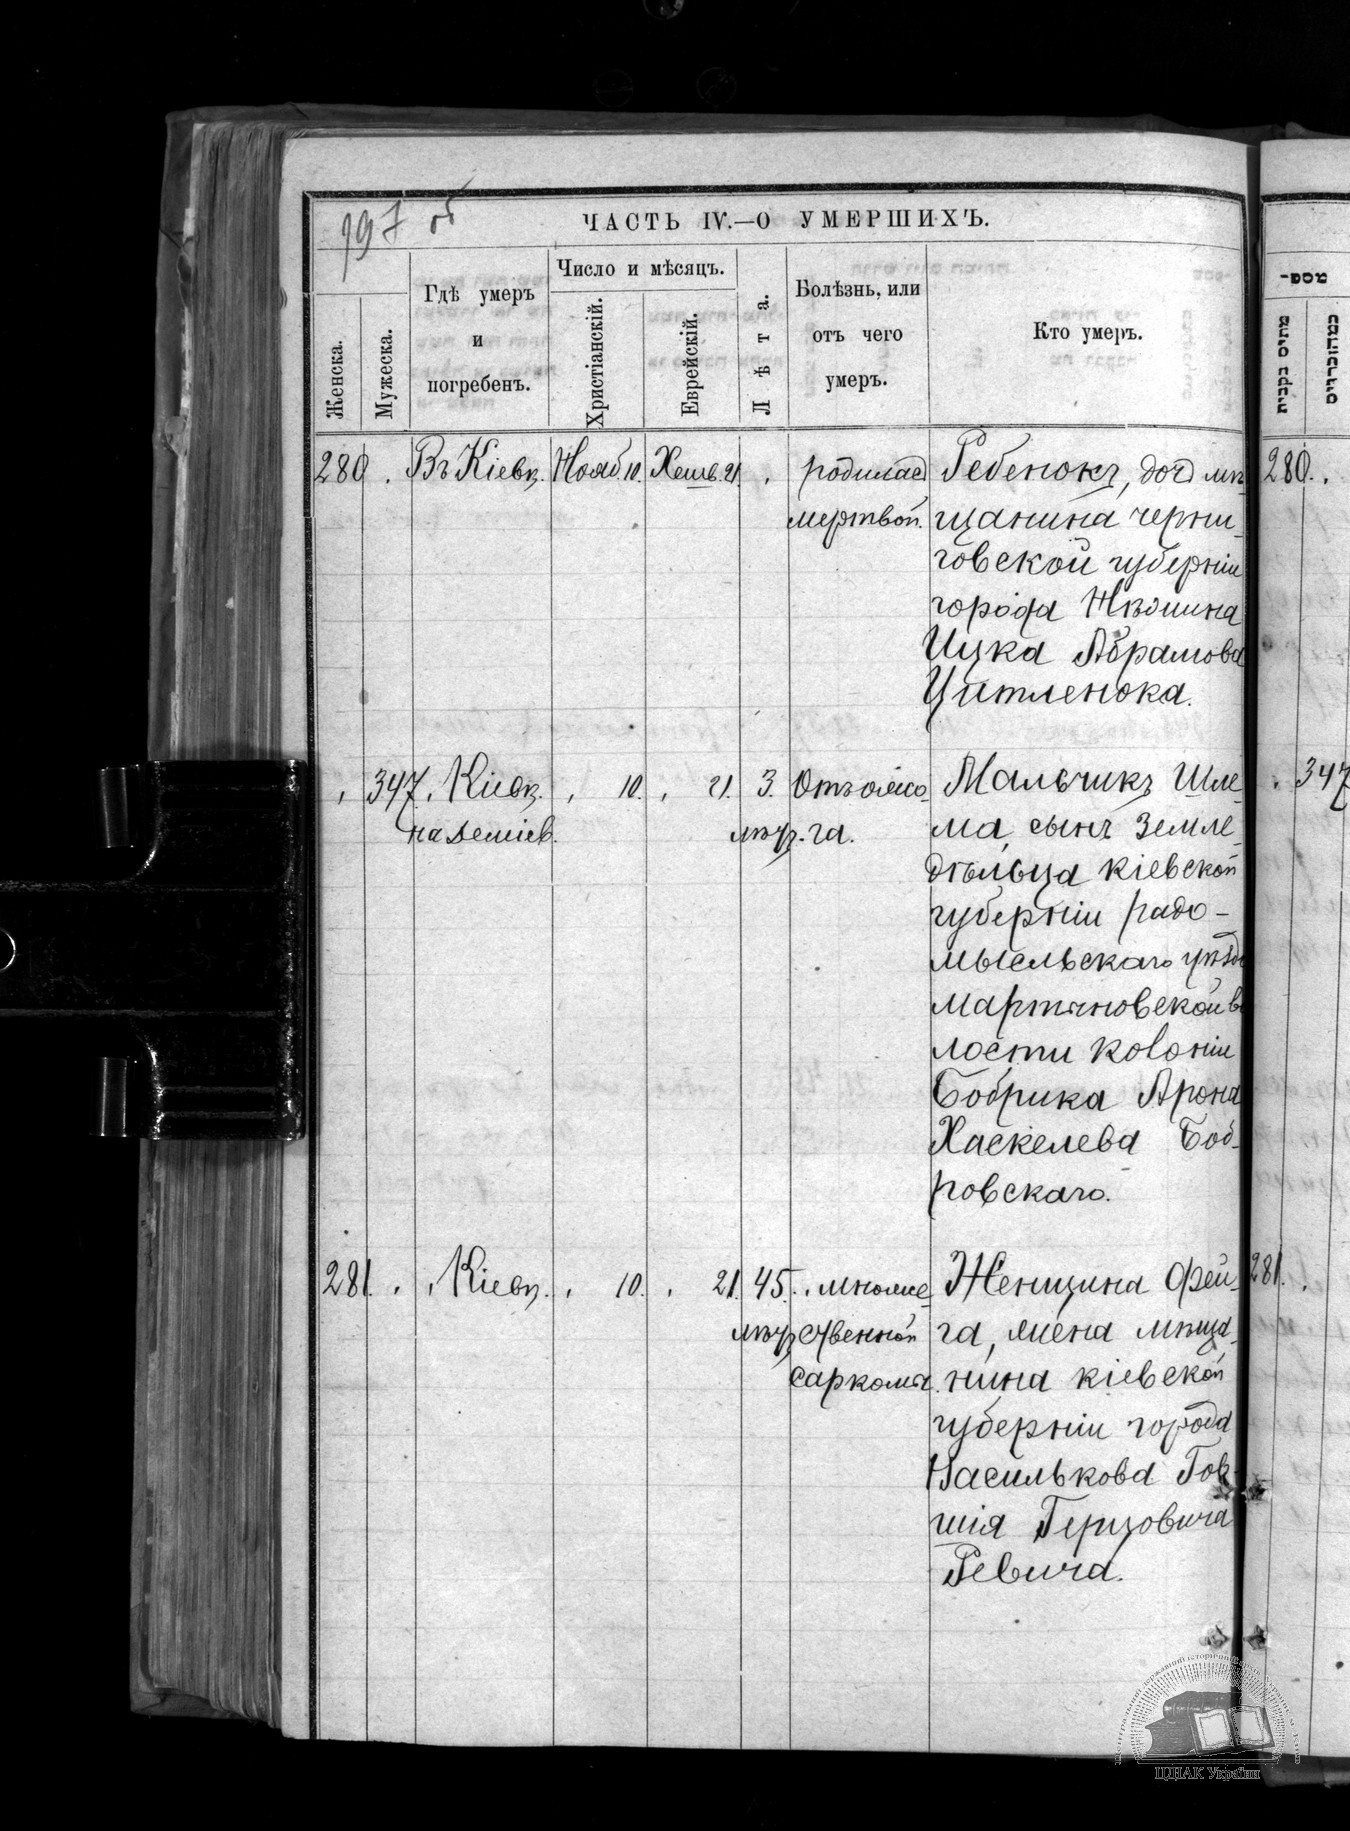 197 об
ЧАСТЬ IV.—О УМЕРШИХЪ.
Женска.
Мужеска.
Гдѣ умеръ
и
погребенъ.
Число и мѣсяцъ.
Христіанскій.
Еврейскій.
Лѣта.
Болѣзнь, или
отъ чего
умеръ.
Кто умеръ.
280 . Въ Кіевѣ. Нояб. 10. Хешв. 21. . родилась
мертвой.
Ребенокъ, дочь мѣ-
щанина черни-
говской губерніи
города Нѣжина
Ицка Абрамова
Цитленока.
, 347. Кіевѣ. , 10. , 21. 3. Отъ ожо-
на Деміев. мѣсц. га.
Мальчикъ Шле-
ма, сынъ земле-
дѣльца кіевской
губерніи радо-
мысльскаго уѣзда
мартыновской во
лости колоніи
Бобрика Арона
Хаскелева Боб-
ровскаго.
281. . , Кіевѣ. , 10. , 21. 45. . множе-
ственной
саркомы.
Женщина Фей-
га, жена мѣща-
нина кіевской
губерніи города
Василькова Гов-
шія Герцовича
Ревича.
מספ־
מתים נקבות
280. .
. 347
281. .
ЦДІАК України